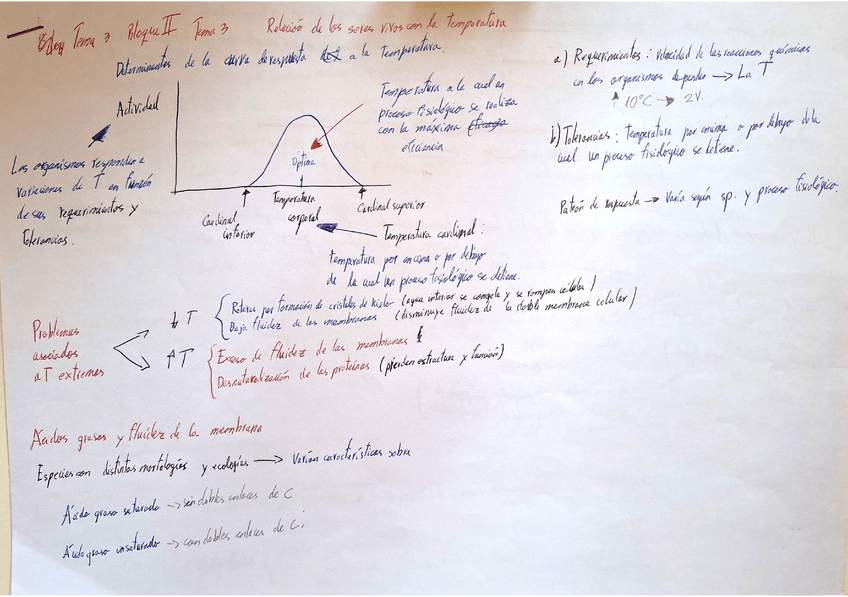 Tema 3 Bloque II Tema 3 Relación de los seres vivos con la temperatura
Determinantes de la curva de respuesta a la Temperatura.
Actividad
Los organismos responden a
variaciones de T en función
de sus requerimientos y
Tolerancias.
Óptima
Cardinal
inferior
Temperatura
corporal
Cardinal superior
Temperatura a la cual un
proceso fisiológico se realiza
con la máxima eficacia
eficiencia
Temperatura cardinal :
temperatura por encima o por debajo
de la cual un proceso fisiológico se detiene.
a) Requerimientos : velocidad de las reacciones químicas
en los organismos depende → La T
↑ 10°C → 2V.
b) Tolerancias : temperatura por encima o por debajo de la
cual un proceso fisiológico se detiene.
Patrón de respuesta → Varía según sp. y proceso fisiológico.
Problemas
asociados
a T extremas
↓ T
Roturas por formación de cristales de hielo (agua interior se congela y se rompen células)
Baja fluidez de las membranas (disminuye fluidez de la doble membrana celular)
↑ T
Exceso de fluidez de las membranas
Desnaturalización de las proteínas (pierden estructura y función)
Ácidos grasos y fluidez de la membrana
Especies con distintas morfologías y ecologías → Varían características sobre
Ácido graso saturado → sin dobles enlaces de C
Ácido graso insaturado → con dobles enlaces de C.